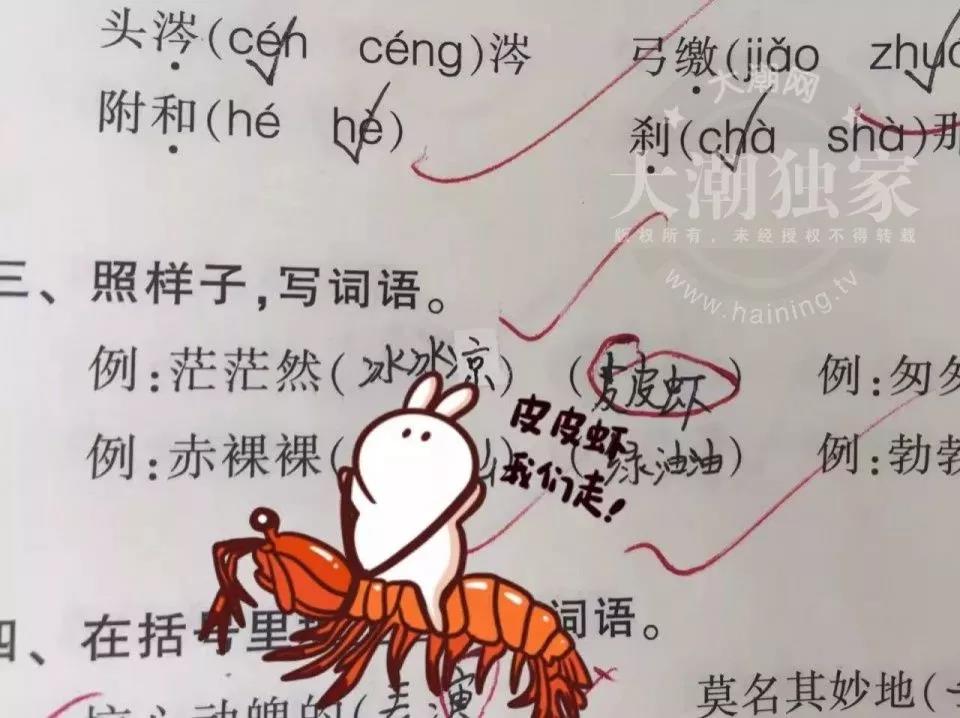 头涔(cén céng)涔 弓缴(jiǎo
附和(hé hè) 刹(chà shà)那
大潮网
大潮独家
版权所有，未经授权不得转载
www.haining.tv
三、照样子,写词语。
例:茫茫然(冰冰凉) (皮皮虾) 例:匆匆
例:赤裸裸( (绿油油) 例:勃勃
皮皮虾
我们走!
四、在括号里 词语。
动魄的(表演 莫名其妙地(